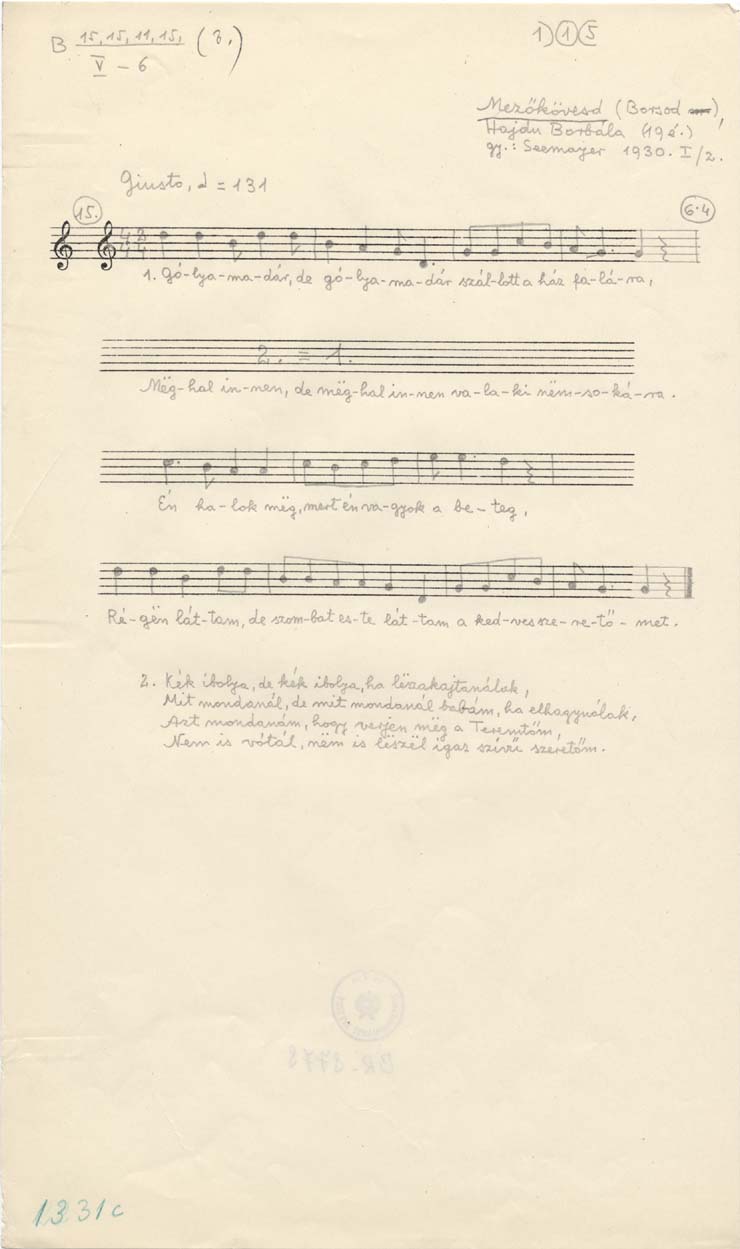 B 15, 15, 11, 15, (3.)
V – 6
1) 1 5
Mezőkövesd (Borsod),
Hajdu Borbála (19é.)
gy.: Seemayer 1930. I/2.
Giusto, = 131
15.
6·4
4 2
4 4
1. Gó-lya-ma-dár, de gó-lya-ma-dár szál-lott a ház fa-lá-ra,
2. = 1.
Mëg-hal in-nen, de mëg-hal in-nen va-la-ki nëm-so-ká-ra.
Én ha-lok mëg, mert én va-gyok a be-teg,
Ré-gën lát-tam, de szom-bat es-te lát-tam a ked-ves sze-re-tő-met.
2. Kék ibolya, de kék ibolya, ha lëszakajtanálak,
Mit mondanál, de mit mondanál babám, ha elhagynálak,
Azt mondanám, hogy verjen mëg a Teremtőm,
Nem is vótál, nëm is lëszël igaz szívű szeretőm.
BR-3778
1331c